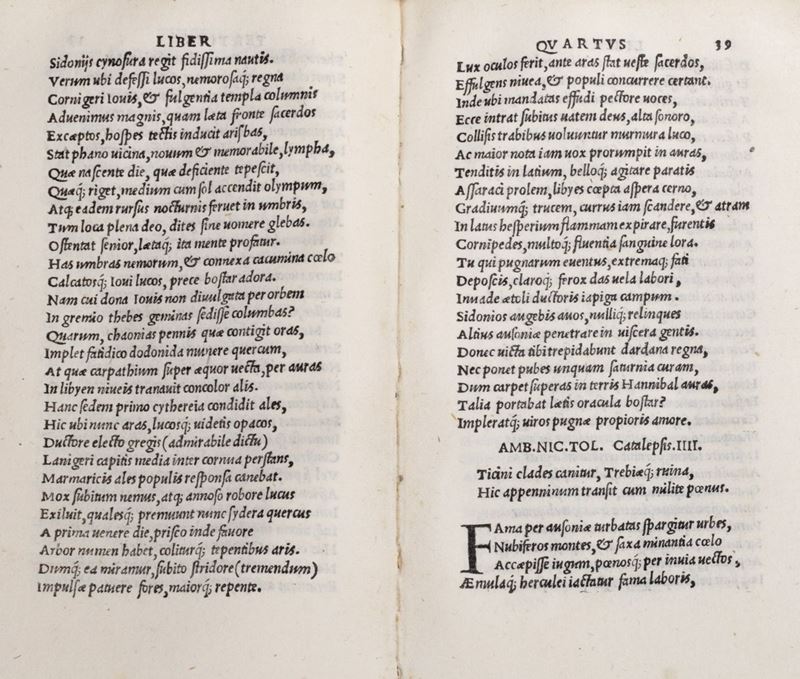 LIBER
Sidonijs cynosura regit fidissima nautis.
Verum ubi defessi lucos, nemorosaq; regna
Cornigeri Iouis, & fulgentia templa columnis
Aduenimus magnis, quam læta fronte sacerdos
Exceptos, hospes tectis inducit arisbas,
Stat phano uicina, nouum & memorabile, lympha,
Quæ nascente die, quæ deficiente tepescit,
Quæq; riget, medium cum sol accendit olympum,
Atq; eadem rursus nocturnis feruet in umbris,
Tum loca plena deo, dites sine uomere glebas.
Ostentat senior, lætaq; ita mente profatur.
Has umbras nemorum, & connexa cacumina cœlo
Calcatosq; Ioui lucos, prece bostar adora.
Nam cui dona Iouis non diuulgata per orbem
In gremio thebes geminas sedisse columbas?
Quarum, chaonias pennis quæ contigit oras,
Implet fatidico dodonida munere quercum,
At quæ carpathium super æquor uecta, per auras
In libyen niueis tranauit concolor alis.
Hanc sedem primo cythereia condidit ales,
Hic ubi nunc aras, lucosq; uidetis opacos,
Ductore electo gregis (admirabile dictu)
Lanigeri capitis media inter cornua perstans,
Marmaricis ales populis responsa canebat.
Mox subitum nemus, atq; annoso robore lucus
Exiluit, qualesq; premunt nunc sydera quercus
A prima uenere die, prisco inde fauore
Arbor numen habet, coliturq; tepentibus aris.
Dumq; ea miramur, subito stridore (tremendum)
Impulsæ patuere fores, maiorq; repente.
QVARTVS 39
Lux oculos ferit, ante aras stat ueste sacerdos,
Effulgens niuea, & populi concurrere certant.
Inde ubi mandatas effudi pectore uoces,
Ecce intrat subitus uatem deus, alta sonoro,
Collisis trabibus uoluuntur murmura luco,
Ac maior nota iam uox prorumpit in auras,
Tenditis in latium, belloq; agitare paratis
Assaraci prolem, libyes cœpta aspera cerno,
Gradiuumq; trucem, currus iam scandere, & atram
In latus hesperium flammam expirare, furentis
Cornipedes, multoq; fluentia sanguine lora.
Tu qui pugnarum euentus, extremaq; fati
Deposcis, claroq; ferox das uela labori,
Inuade ætoli ductoris iapiga campum.
Sidonios augebis auos, nulliq; relinques
Altius ausoniæ penetrare in uiscera gentis.
Donec uicta tibi trepidabunt dardana regna,
Nec ponet pubes unquam saturnia curam,
Dum carpet superas in terris Hannibal auras,
Talia portabat lætis oracula bostar?
Impleratq; uiros pugnæ propioris amore.
AMB. NIC. TOL. Catalepsis. IIII.
Ticini clades canitur, Trebiæq; ruina,
Hic appenninum transit cum milite pœnus.
FAma per ausoniæ turbatas spargitur urbes,
Nubiferos montes, & saxa minantia cœlo
Accepisse iugum, pœnosq; per inuia uectos,
Æmulaq; herculei iactatur fama laboris,